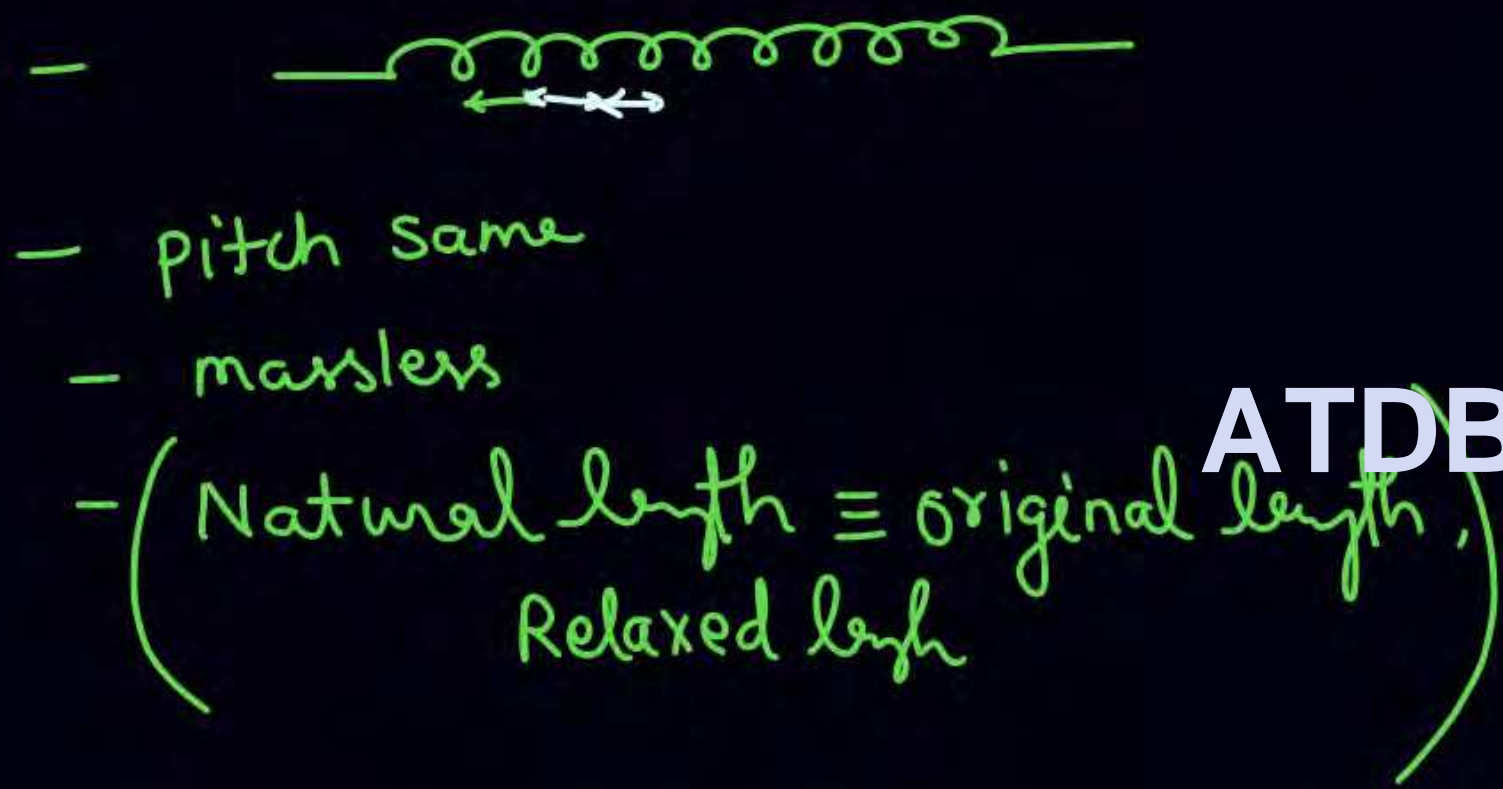 - pitch same
- massless
ATDB
- (Natural length ≡ original length,
Relaxed length)